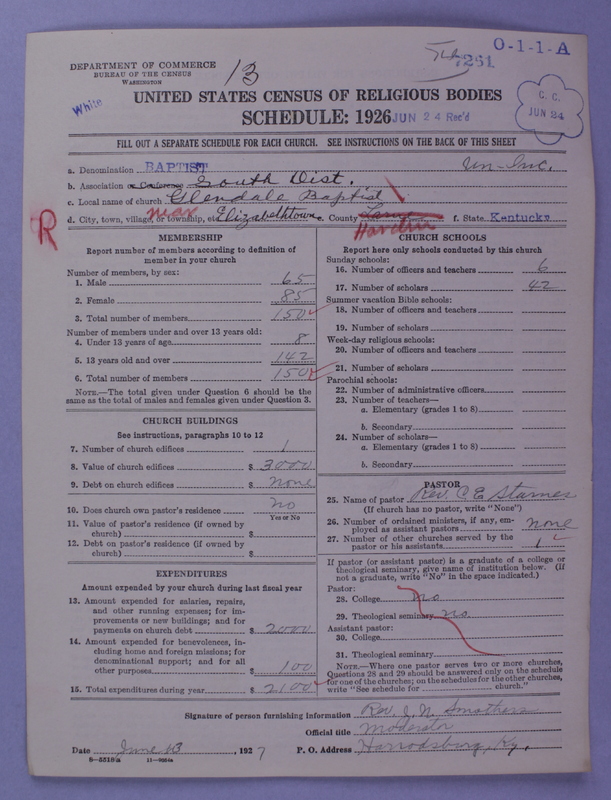 DEPARTMENT OF COMMERCE
BUREAU OF THE CENSUS
WASHINGTON
13
7261
O-1-1-A
White
UNITED STATES CENSUS OF RELIGIOUS BODIES
SCHEDULE: 1926
JUN 24 Rec'd
C. C.
JUN 24
FILL OUT A SEPARATE SCHEDULE FOR EACH CHURCH. SEE INSTRUCTIONS ON THE BACK OF THIS SHEET
a. Denomination BAPTIST Un-Inc.
b. Association or Conference South Dist.
c. Local name of church Glendale Baptist
d. City, town, village, or township, etc. near Elizabethtown e. County Hardin f. State Kentucky
R
MEMBERSHIP
Report number of members according to definition of
member in your church
Number of members, by sex:
1. Male 65
2. Female 85
3. Total number of members 150
Number of members under and over 13 years old:
4. Under 13 years of age 8
5. 13 years old and over 142
6. Total number of members 150
NOTE.—The total given under Question 6 should be the
same as the total of males and females given under Question 3.
CHURCH BUILDINGS
See instructions, paragraphs 10 to 12
7. Number of church edifices 1
8. Value of church edifices $ 3000
9. Debt on church edifices $ none
10. Does church own pastor's residence no
Yes or No
11. Value of pastor's residence (if owned by
church) $
12. Debt on pastor's residence (if owned by
church) $
EXPENDITURES
Amount expended by your church during last fiscal year
13. Amount expended for salaries, repairs,
and other running expenses; for im-
provements or new buildings; and for
payments on church debt $ 2000
14. Amount expended for benevolences, in-
cluding home and foreign missions; for
denominational support; and for all
other purposes $ 100
15. Total expenditures during year $ 2100
CHURCH SCHOOLS
Report here only schools conducted by this church
Sunday schools:
16. Number of officers and teachers 6
17. Number of scholars 42
Summer vacation Bible schools:
18. Number of officers and teachers
19. Number of scholars
Week-day religious schools:
20. Number of officers and teachers
21. Number of scholars
Parochial schools:
22. Number of administrative officers
23. Number of teachers—
a. Elementary (grades 1 to 8)
b. Secondary
24. Number of scholars—
a. Elementary (grades 1 to 8)
b. Secondary
PASTOR
25. Name of pastor Rev. C. E. Starnes
(If church has no pastor, write "None")
26. Number of ordained ministers, if any, em-
ployed as assistant pastors none
27. Number of other churches served by the
pastor or his assistants 1
If pastor (or assistant pastor) is a graduate of a college or
theological seminary, give name of institution below. (If
not a graduate, write "No" in the space indicated.)
Pastor:
28. College no
29. Theological seminary no
Assistant pastor:
30. College
31. Theological seminary
NOTE.—Where one pastor serves two or more churches,
Questions 28 and 29 should be answered only on the schedule
for one of the churches; on the schedules for the other churches,
write "See schedule for church."
Signature of person furnishing information Rev. J. N. Smothers
Official title Moderator
Date June 13, 1927 P. O. Address Harrodsburg, Ky.
8-5518a 11-9264a